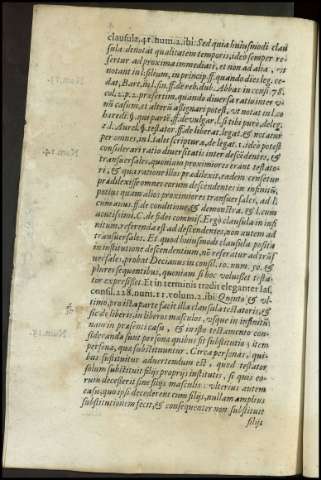 clausula, 41. num. 2. ibi: Sed quia huiusmodi clau
sula denotat qualitatem temporis, ideo semper re
fertur ad proxima immediati, et non ad alia, vt
notant in l. si dum, in princip. ff. quando dies leg. ce
dat, Bart. in l. fin. ff. de reb. dub. Abbas in consi. 78.
col. 2. p. 2. præsertim, quando diuersa ratio inter v
nū casum, et alterū assignari potest, vt notat in l. co
hæredi. §. qui patrē, ff. de vulgar. l. si tibi pure, de leg.
2. l. Aurel. §. testator. ff. de liberat. legat. & notatur
per omnes, in l. tales scripturæ, de legat. 1. ideo potest
considerari ratio diuersitatis inter descēdentes, &
transuersales, quoniam proximiores erant testato
ri, & qua ratione illos prædilexit, eadem censetur
prædilexisse omnes eorum descendentes in infinitū,
potius quam alios proximiores transuersales, ad l.
cum auus. ff. de conditione, & demonstra. & l. cum
acutissimi, C. de fidei commis. Ergò clausula in infi
nitum, referenda est ad descendentes, non autem ad
transuersales. Et quod huiusmodi clausula posita
in institutione descendentium, nō referatur ad trāsuersales, probat Decianus in consil. 10. num. 50. &
pluries sequentibus, quoniam si hoc voluisset testa-
tor expresisset. Et in terminis tradit eleganter Ias.
consil. 228. num. 11. volum. 2. ibi: Quinto & vl-
timo, pro ista parte facit illa clausula testatoris, &
sic de liberis, in liberos masculos, vsque in infinitū,
nam in præsenti casu, & in isto testamento con-
siderandæ sunt personæ quibus fit substitutio; item
personæ, quæ substituuntur. Circa personas, qui-
bus substituitur aduertendum est, quod testator
solum substituit filijs proprijs institutis, si quis eo-
rum decesserit sine filijs masculis: vlterius autem
casu, quo ipsi decederent cum filijs, nullam amplius
substitutionem fecit, & consequenter non substituit
filijs